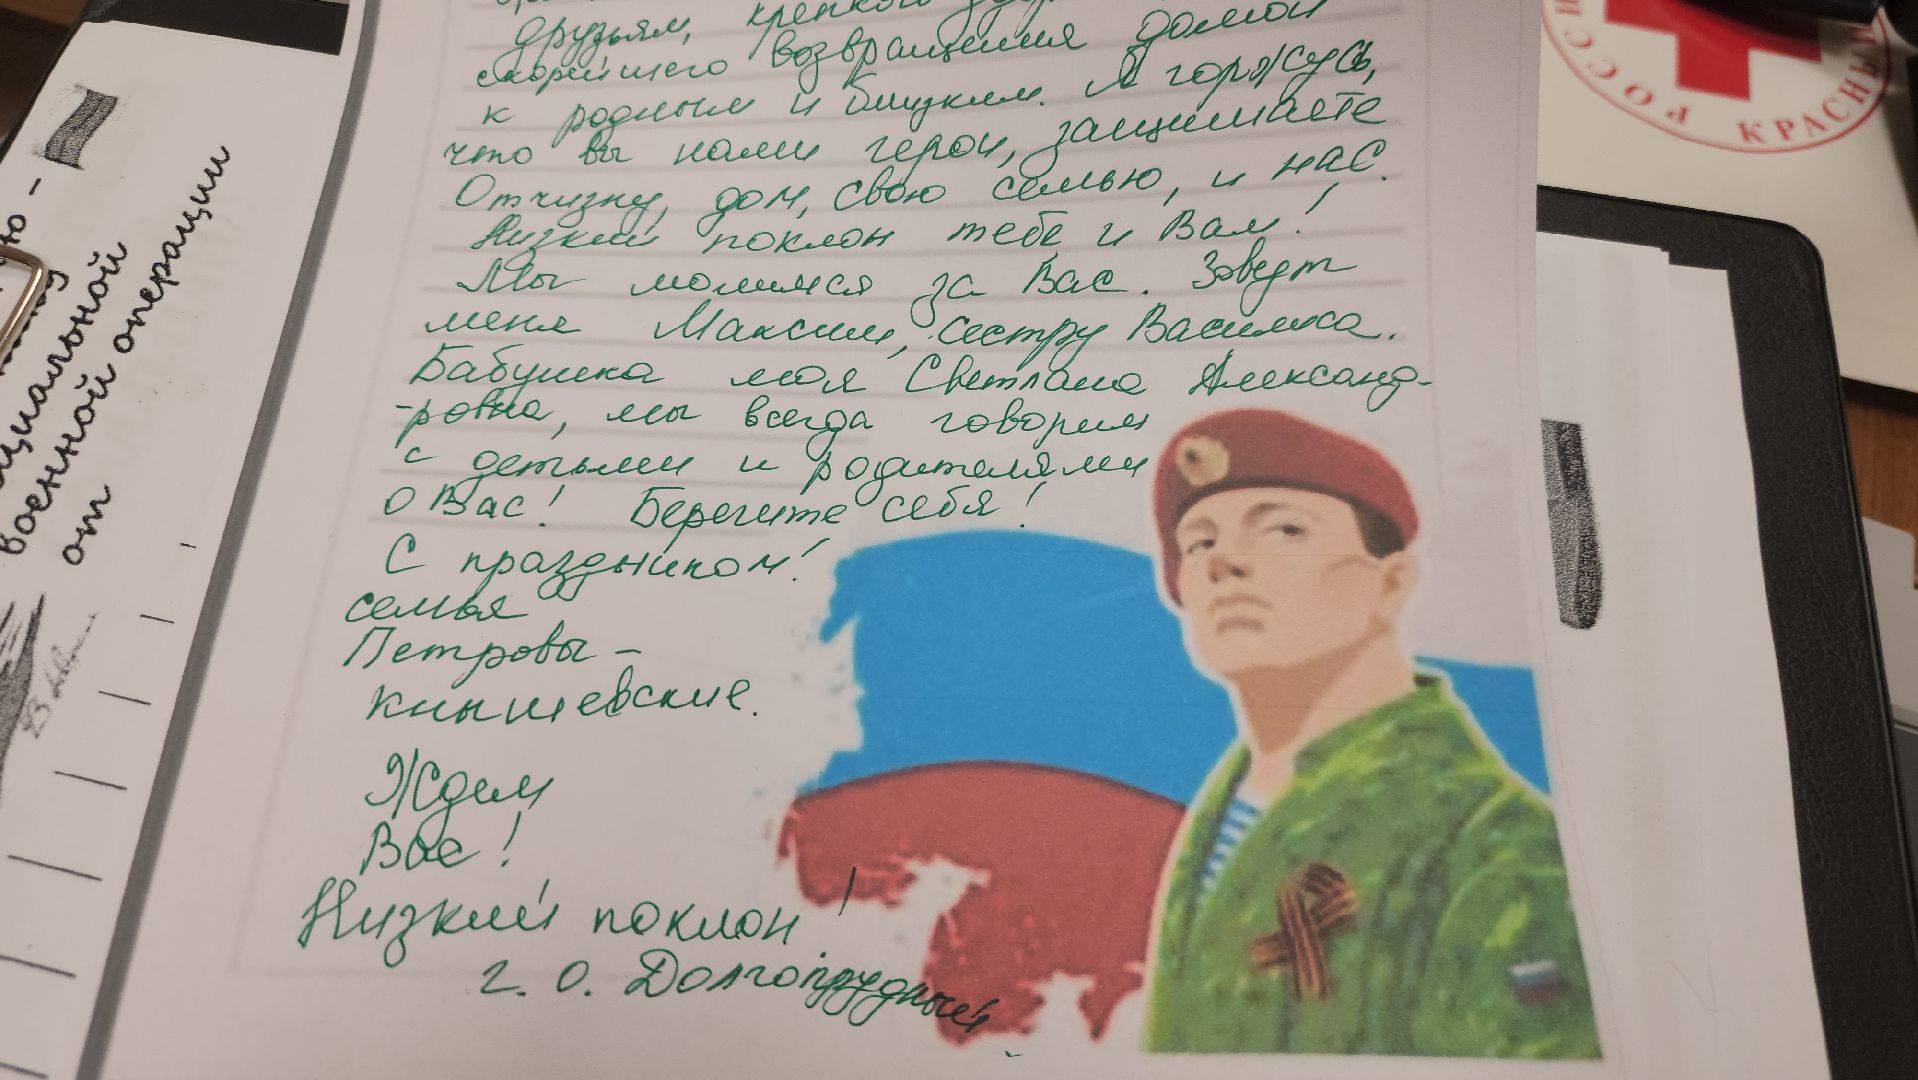 друзьям, крепкого
скорейшего возвращения домой
к родным и близким. Я горжусь,
что вы наши герои, защищаете
Отчизну, дом, свою семью, и нас.
Низкий поклон тебе и Вам!
Мы молимся за Вас. Зовут
меня Максим, сестру Василиса.
Бабушка моя Светлана Александ-
-ровна, мы всегда говорим
с детьми и родителями
о Вас! Берегите себя!
С праздником!
семья
Петровы -
Кнышевские.
Ждем
Вас!
Низкий поклон!
г. о. Долгопрудный
военной операции
от
КРАСНЫ